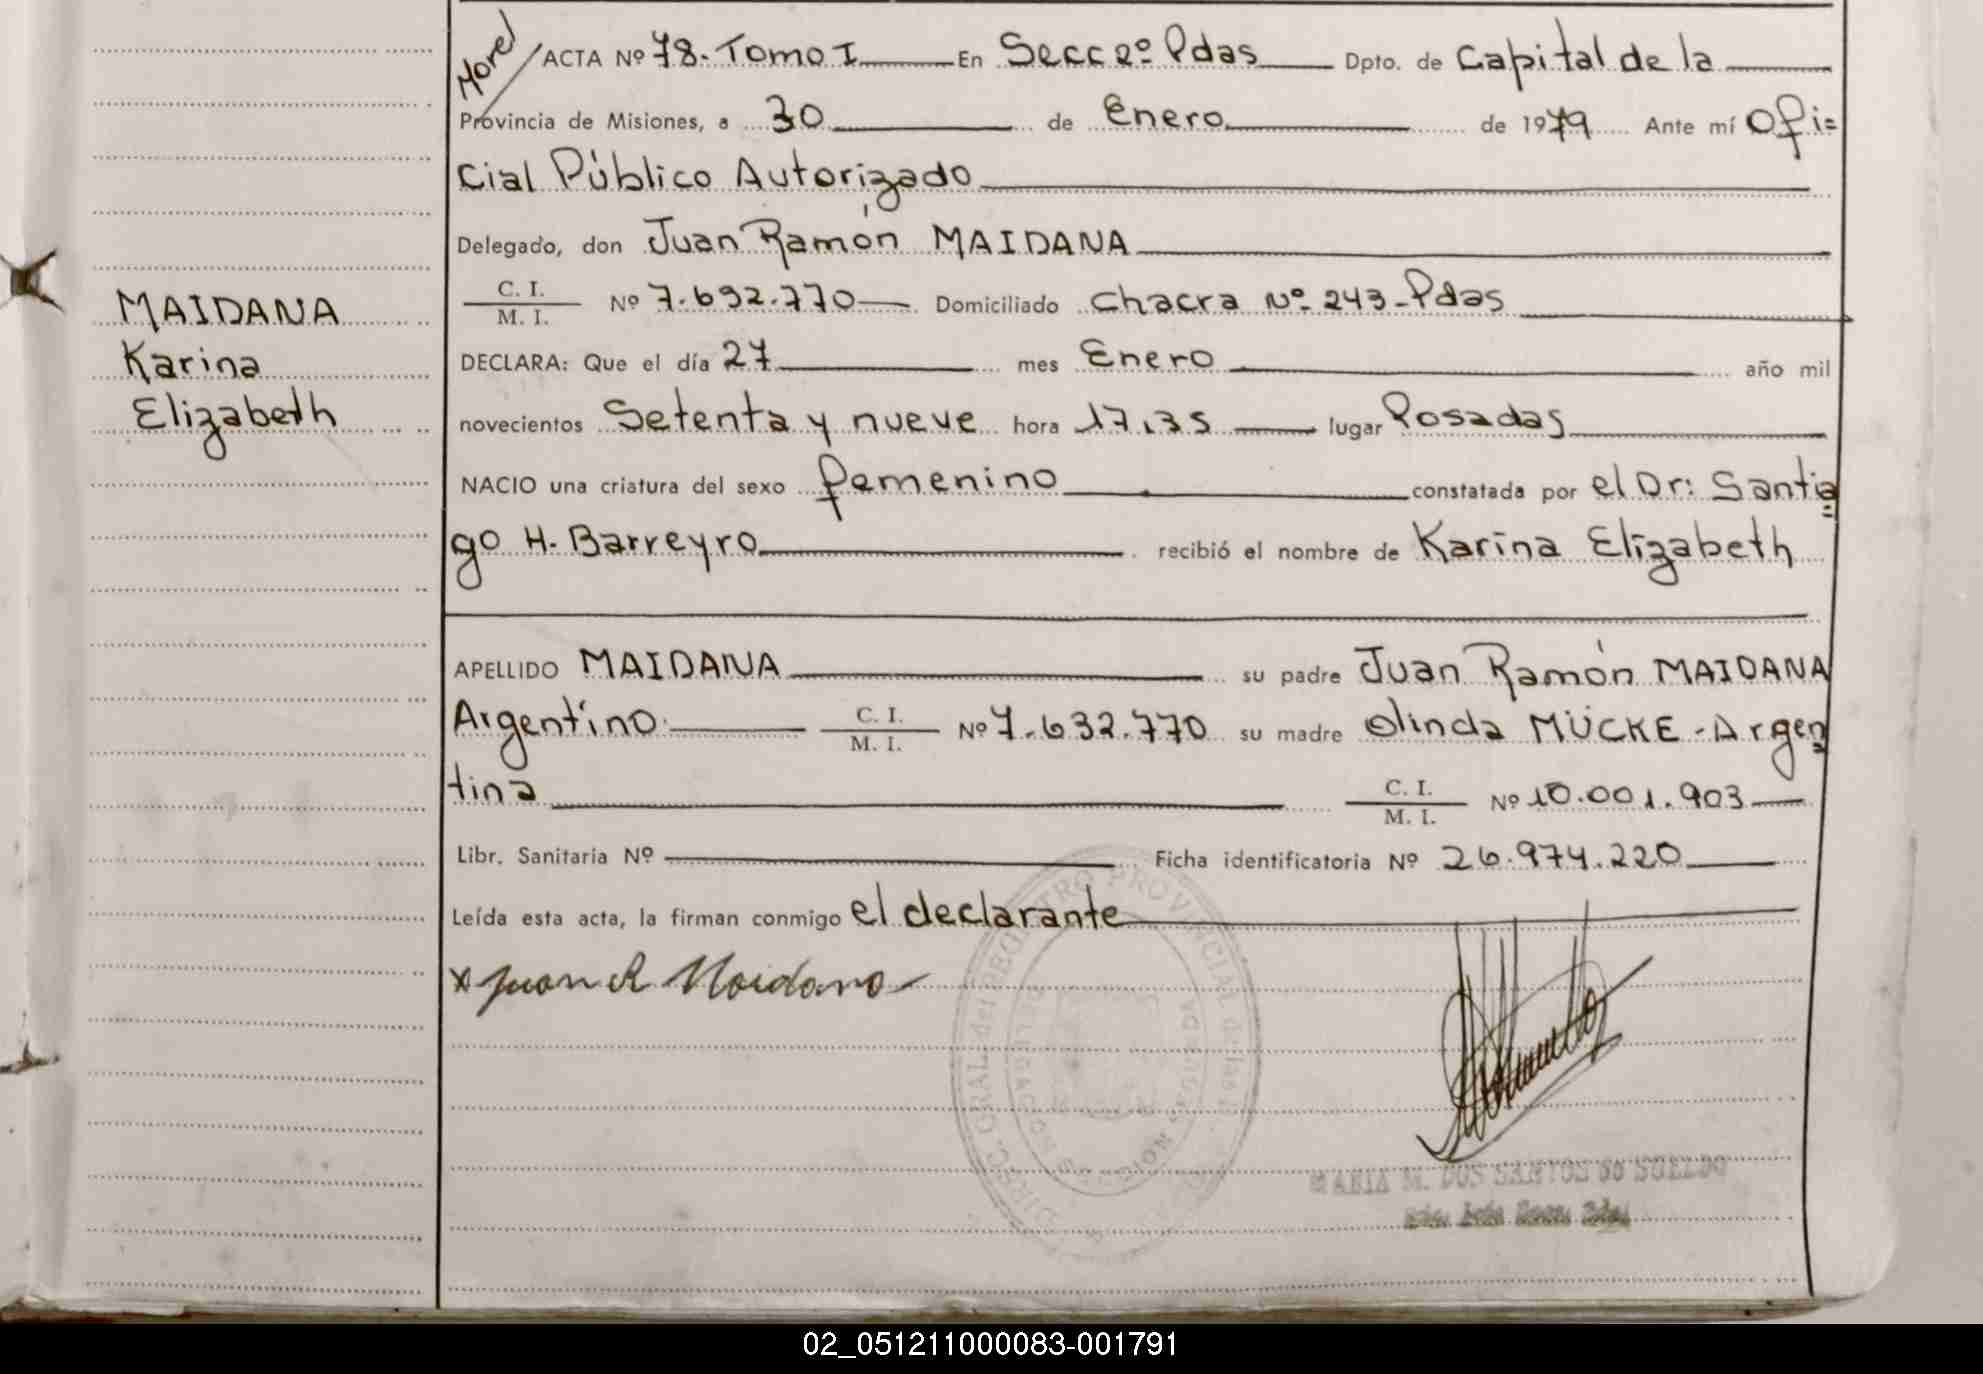 Morel
ACTA Nº 78. Tomo I En Secc 2º Pdas Dpto. de Capital de la
Provincia de Misiones, a 30 de Enero de 1979 Ante mí Ofi=
cial Público Autorizado
Delegado, don Juan Ramón MAIDANA
C. I.
M. I. Nº 7.632.770 Domiciliado Chacra Nº 243-Pdas
MAIDANA
Karina
Elizabeth
DECLARA: Que el día 27 mes Enero año mil
novecientos Setenta y nueve hora 17,35 lugar Posadas
NACIO una criatura del sexo femenino constatada por el Dr: Santia
go H. Barreyro recibió el nombre de Karina Elizabeth
APELLIDO MAIDANA su padre Juan Ramón MAIDANA
Argentino C. I.
M. I. Nº 7.632.770 su madre Olinda MÜCKE - Argen
tina C. I.
M. I. Nº 10.001.903
Libr. Sanitaria Nº Ficha identificatoria Nº 26.974.220
Leída esta acta, la firman conmigo el declarante
x Juan R Maidana
DIREC. GRAL. del REGISTRO PROVINCIAL de las
MARIA M. DOS SANTOS de SUELDO
02_051211000083-001791